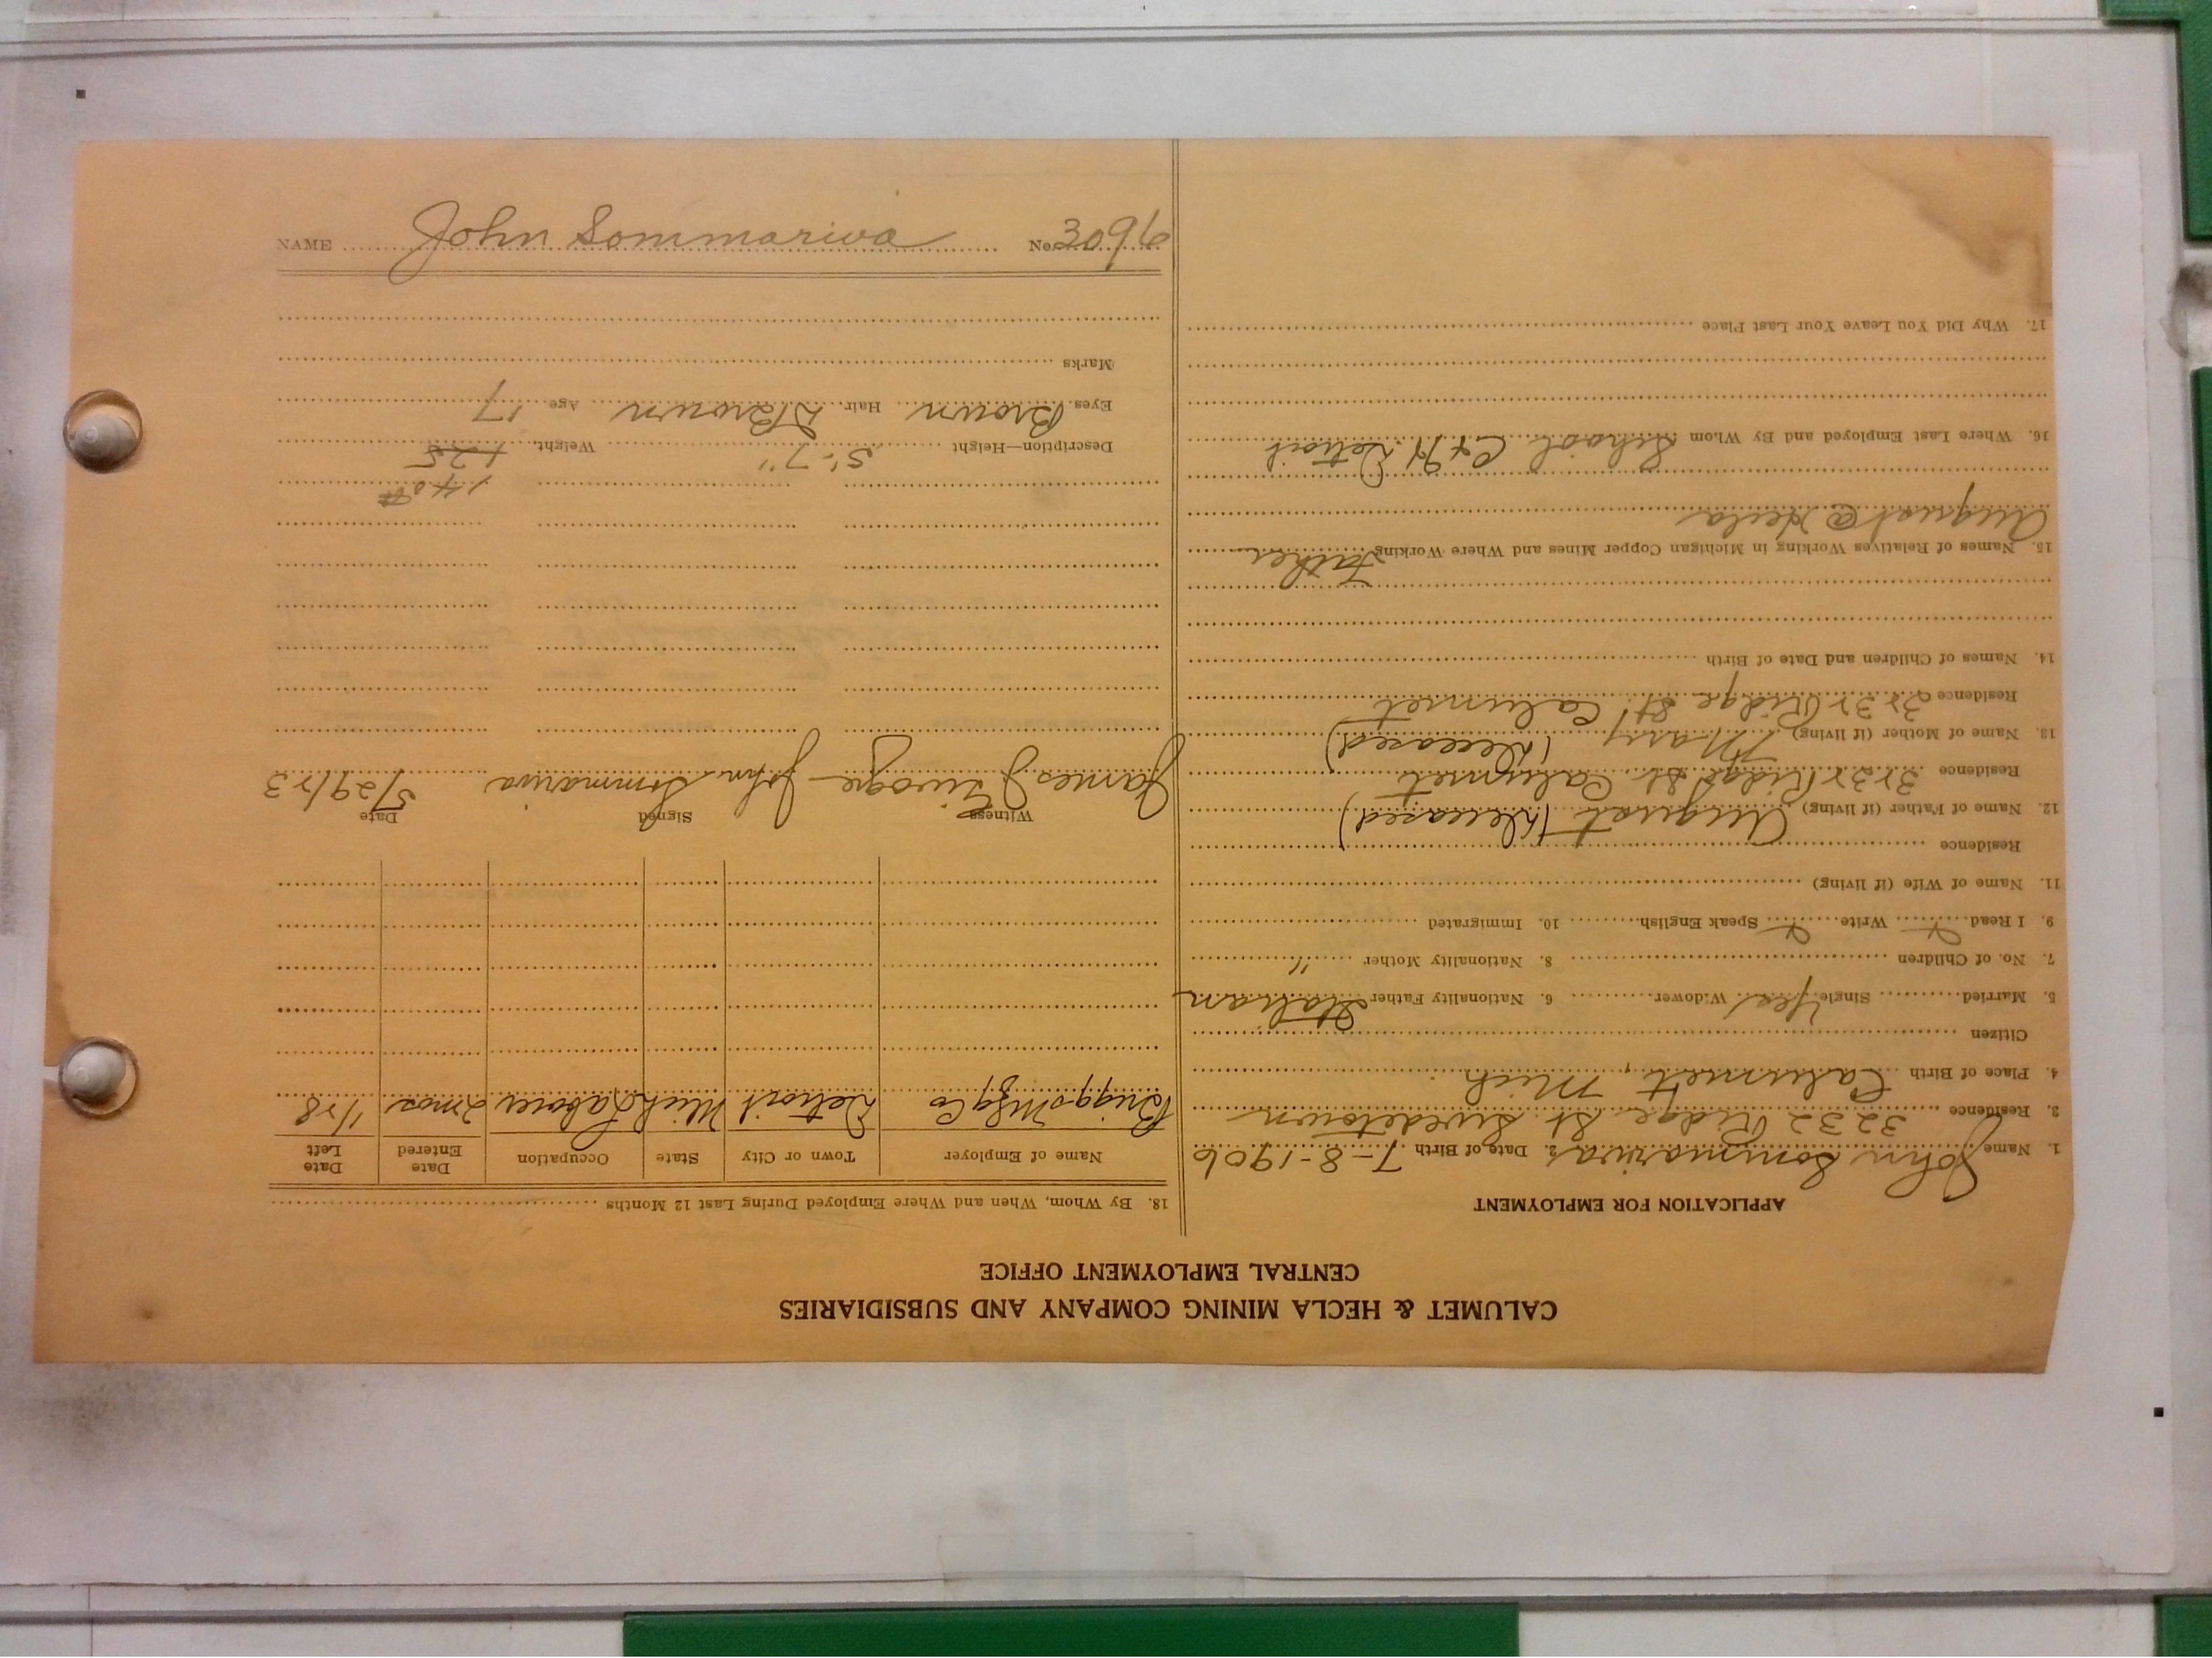 CALUMET & HECLA MINING COMPANY AND SUBSIDIARIES
CENTRAL EMPLOYMENT OFFICE
APPLICATION FOR EMPLOYMENT
1. Name John Sommariva 2. Date of Birth 7-8-1906
3. Residence 3232 Ridge St. Swedetown
4. Place of Birth Calumet, Mich
Citizen
5. Married Single Yes Widower 6. Nationality Father Italian
7. No. of Children 8. Nationality Mother "
9. I Read Write Speak English 10. Immigrated
11. Name of Wife (if living)
Residence
12. Name of Father (if living) August (Deceased)
Residence 3232 Ridge St. Calumet
13. Name of Mother (if living) Mary (Deceased)
Residence 3232 Ridge St. Calumet
14. Names of Children and Date of Birth
15. Names of Relatives Working in Michigan Copper Mines and Where Working Father
August @ Hecla
16. Where Last Employed and By Whom School C+H Detroit
17. Why Did You Leave Your Last Place
18. By Whom, When and Where Employed During Last 12 Months
Name of Employer Town or City State Occupation Date Entered Date Left
Briggs Mfg Co Detroit Mich Laborer 2mos 1/28
Witness Signed Date
James J John Sommariva 5/29/23
140#
Description—Height 5'-7" Weight 125
Eyes Brown Hair D Brown Age 17
Marks
NAME John Sommariva No. 3096